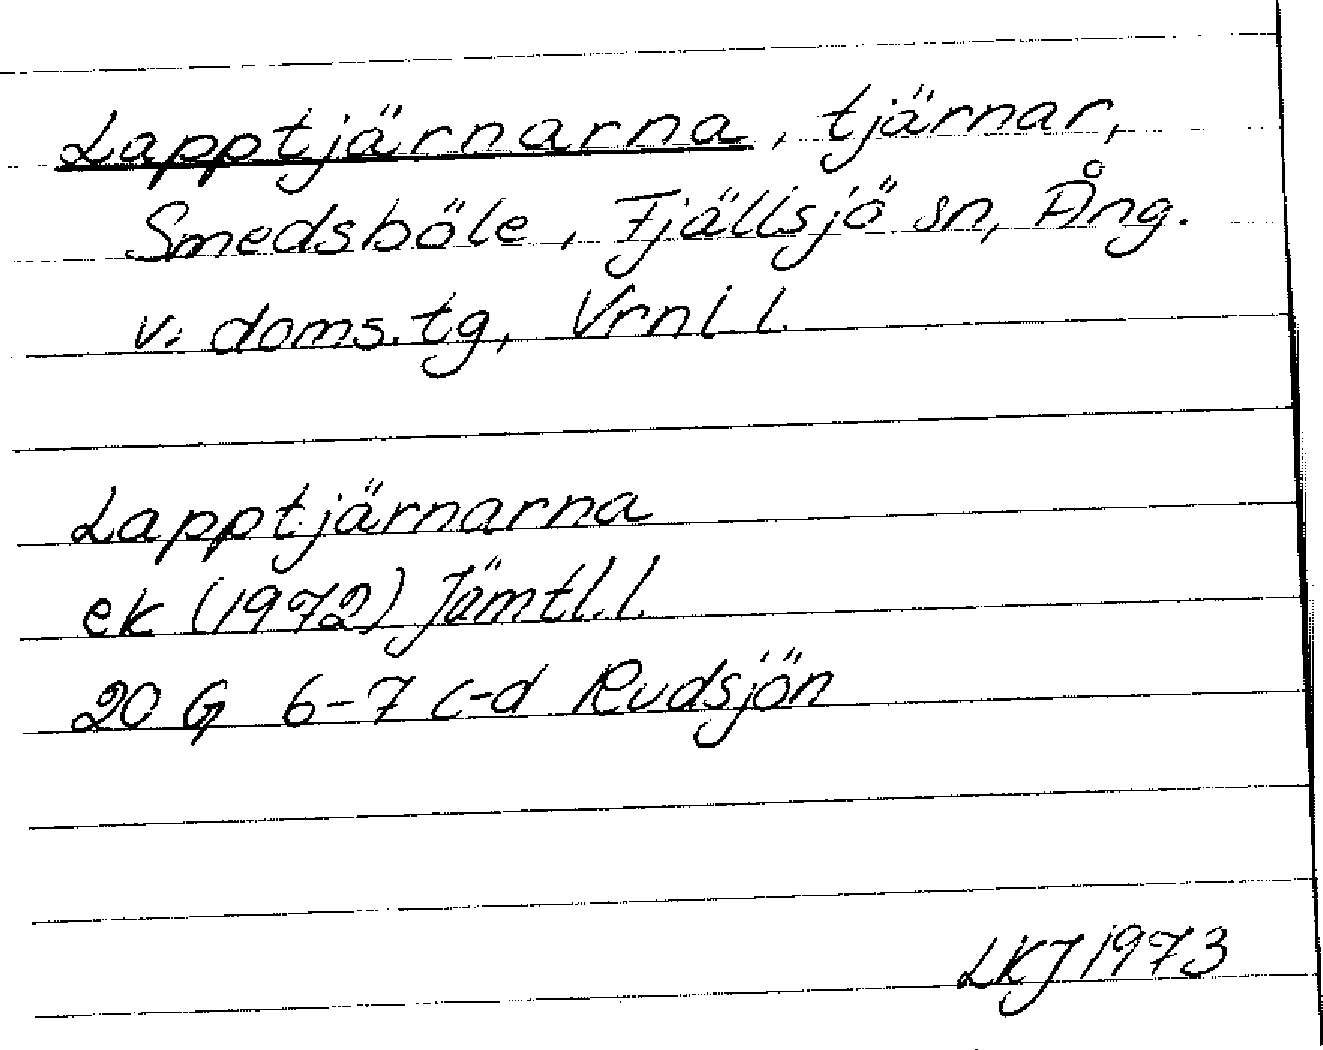 Lapptjärnarna, tjärnar,
Smedsböle, Fjällsjö sn, Ång.
v: doms.tg, Vrnl l.
Lapptjärnarna
ek (1972) Jämtl.l.
20 G 6-7 c-d Rudsjön
LKJ 1973